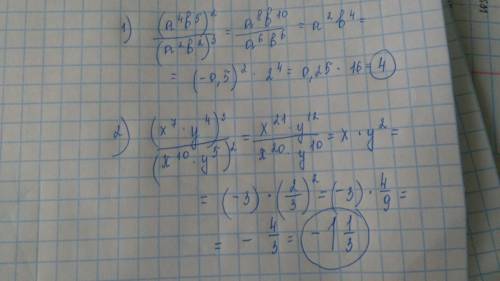 1) (a⁴b⁵)² / (a²b²)³ = a⁸b¹⁰ / a⁶b⁶ = a²b⁴ =
= (-0,5)² · 2⁴ = 0,25 · 16 = 4
2) (x⁷ · y⁴)³ / (x¹⁰ · y⁵)² = x²¹ · y¹² / x²⁰ · y¹⁰ = x · y² =
= (-3) · (2/3)² = (-3) · 4/9 =
= - 4/3 = -1 1/3